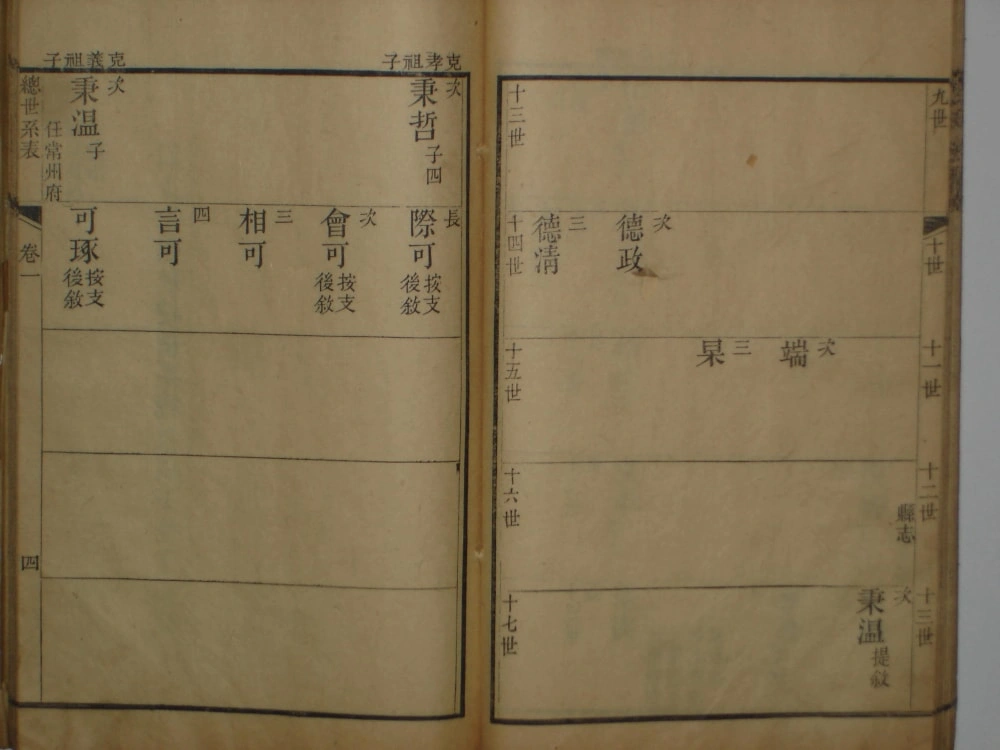 九世
十世
十一世
十二世
十三世
縣志
次
秉温
提敘
次
端
三
杲
次
德政
三
德淸
十三世
十四世
十五世
十六世
十七世
克孝祖子
次
秉哲
子四
長
際可
按支
後敘
次
會可
按支
後敘
三
相可
四
言可
克義祖子
次
秉温
子
任常州府
可琢
按支
後敘
總世系表
卷一
四